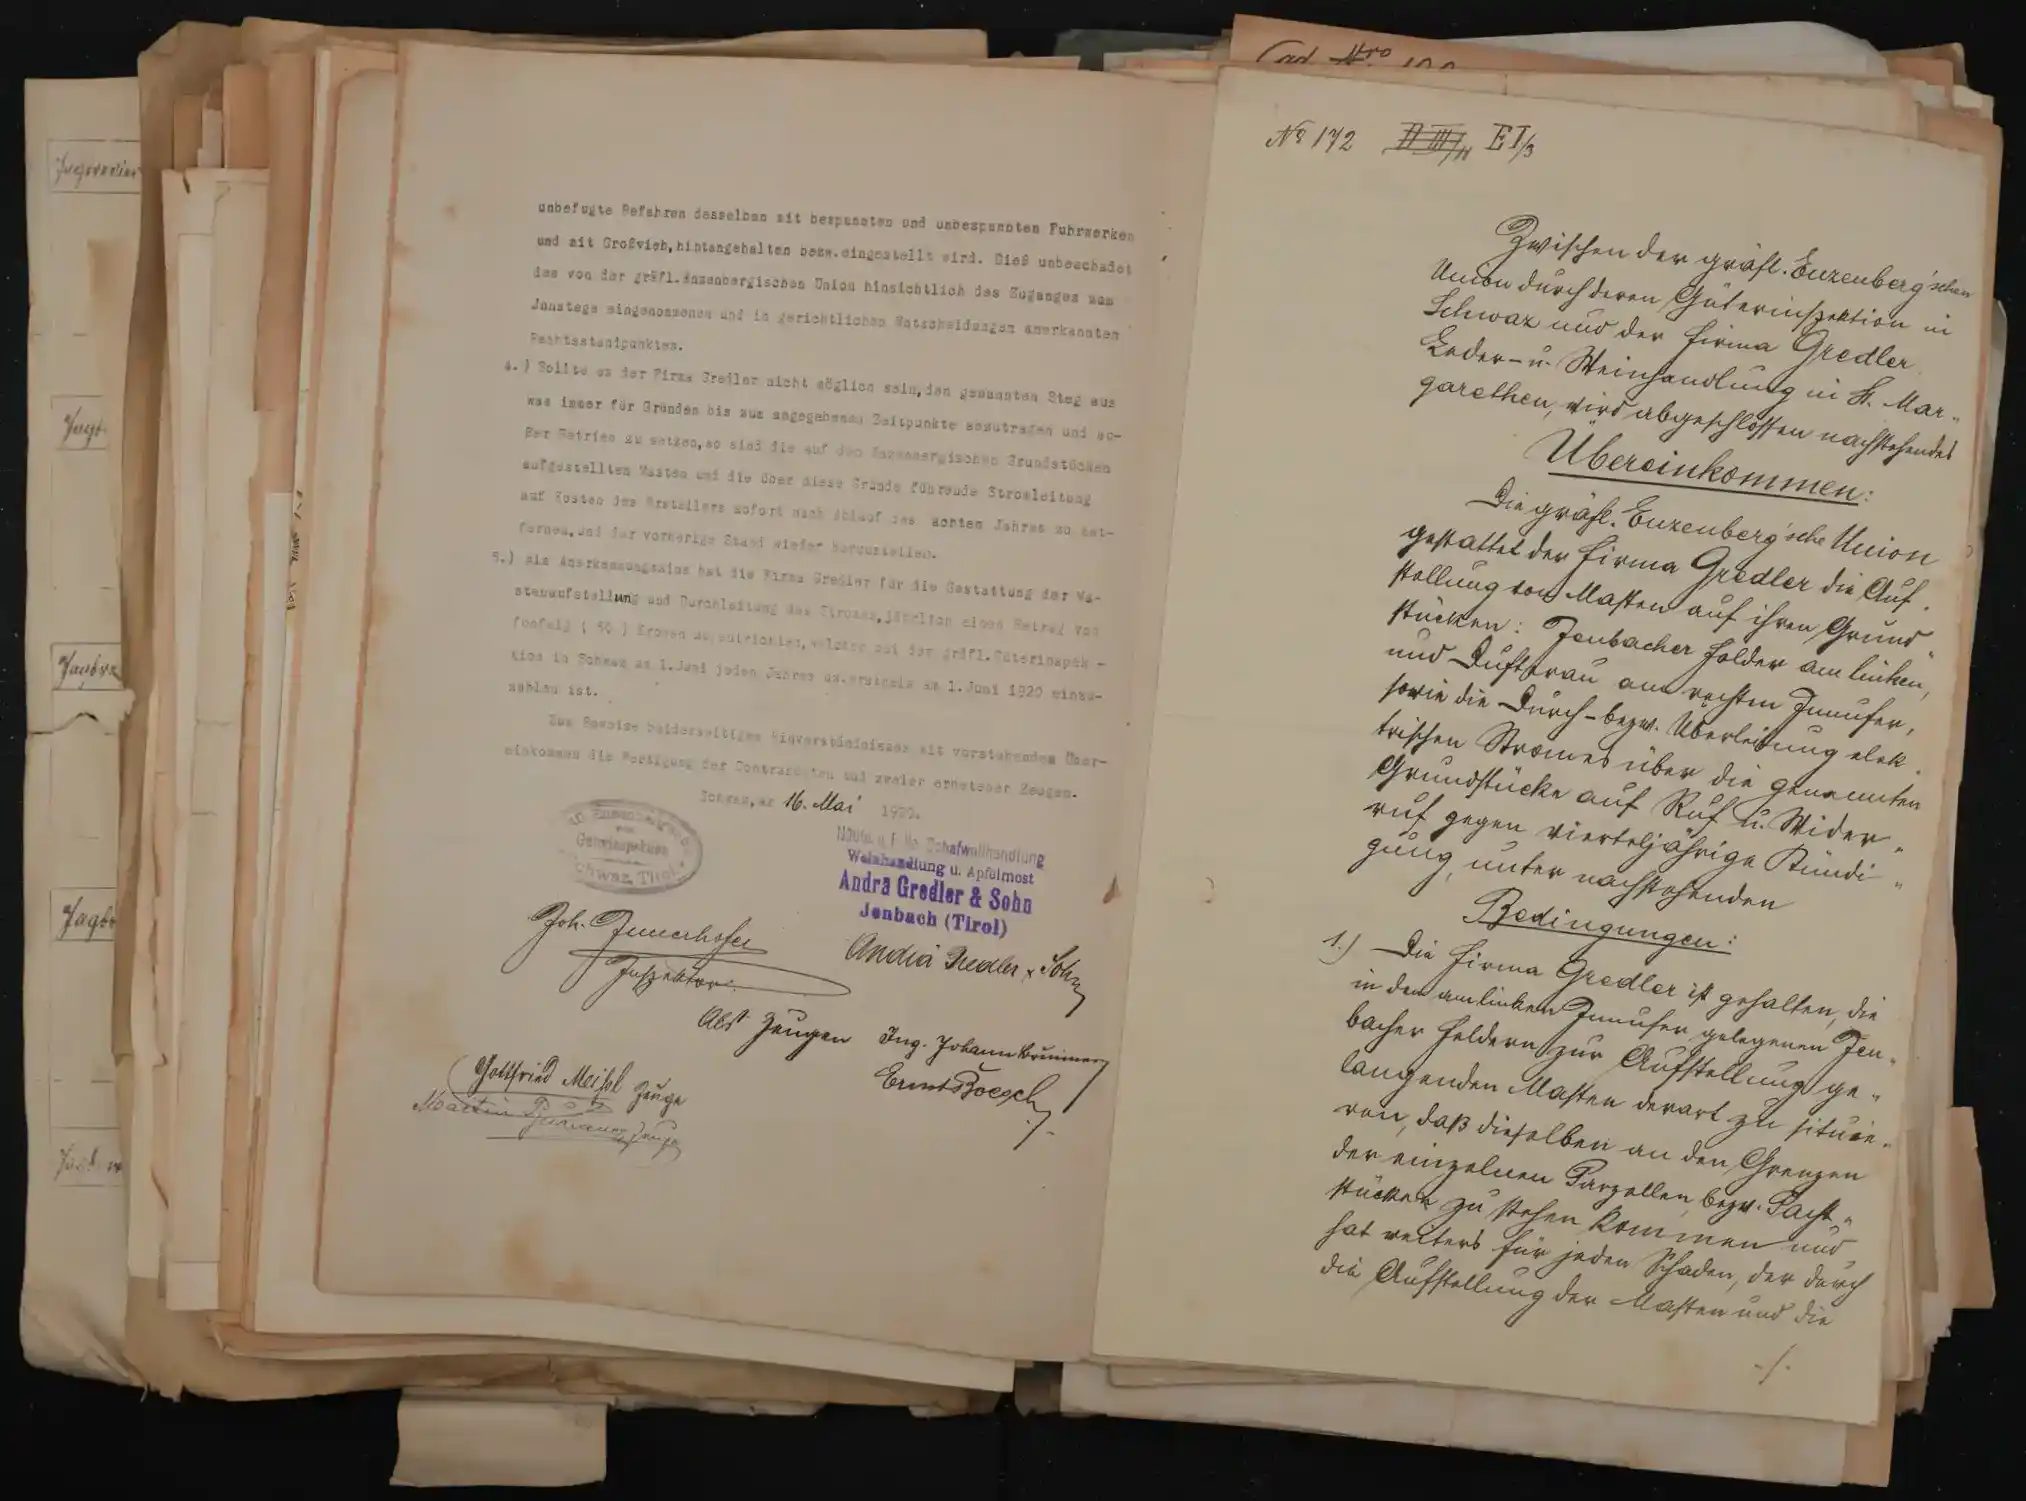 Jagdrevier
Jagd-
unbefugte Befahren desselben mit bespannten und unbespannten Fuhrwerken
und mit Großvieh, hintangehalten bezw. eingestellt wird. Dies unbeschadet
des von der gräfl. Enzenbergischen Union hinsichtlich des Zuganges zum
Innstege eingenommenen und in gerichtlichen Entscheidungen anerkannten
Rechtsstandpunktes.
4.) Sollte es der Firma Gredler nicht möglich sein, den genannten Steg aus
was immer für Gründen bis zum angegebenen Zeitpunkte abzutragen und au-
ßer Betrieb zu setzen, so sind die auf den Enzenbergischen Grundstücken
aufgestellten Masten und die über diese Gründe führende Stromleitung
auf Kosten des Erstellers sofort nach Ablauf des achten Jahres zu ent-
fernen, und der vorherige Stand wieder herzustellen.
5.) Als Anerkennungszins hat die Firma Gredler für die Gestattung der Ma-
stenaufstellung und Durchleitung des Stromes, jährlich einen Betrag von
fünfzig ( 50 ) Kronen zu entrichten, welcher bei der gräfl. Güterinspek -
tion in Schwaz am 1. Juni jeden Jahres erstmals am 1. Juni 1920 einzu-
zahlen ist.
Zum Beweise beiderseitigen Einverständnisses mit vorstehendem Über-
einkommen die Fertigung der Contrahenten und zweier erbetener Zeugen.
Schwaz, am 16. Mai 1920.
Enzenberg
Güterinspektion
Schwaz, Tirol
Häute u. Schafwollhandlung
Weinhandlung u. Apfelmost
Andrä Gredler & Sohn
Jenbach (Tirol)
Joh. Innerhofer
Inspektor.
Andrä Gredler & Sohn
Als Zeugen Ing. Johann
Ernst Boesch
Gottfried Meisl Zeuge
Martin Zeuge
Cad. Nro
No 172 EI/3
Zwischen der gräfl. Enzenberg'schen
Union durch deren Güterinspektion in
Schwaz und der Firma Gredler
Leder- u. Weinhandlung in St. Mar-
garethen, wird abgeschlossen nachstehendes
Übereinkommen:
Die gräfl. Enzenberg'sche Union
gestattet der Firma Gredler die Auf-
stellung von Masten auf ihren Grund-
stücken: Jenbacher Felder am linken,
und Duftnerau am rechten Innufer,
sowie die Durch- bezw. Überleitung elek-
trischen Stromes über die genannten
Grundstücke auf Ruf u. Wider-
ruf gegen vierteljährige Kündi-
gung, unter nachstehenden
Bedingungen:
1.) Die Firma Gredler ist gehalten, die
in den am linken Innufer gelegenen Jen-
bacher Feldern zur Aufstellung ge-
langenden Masten derart zu situie-
ren, daß dieselben an den Grenzen
der einzelnen Parzellen, bezw. Pacht-
stücken zu stehen kommen und
hat weiters für jeden Schaden, der durch
die Aufstellung der Masten und die
./.